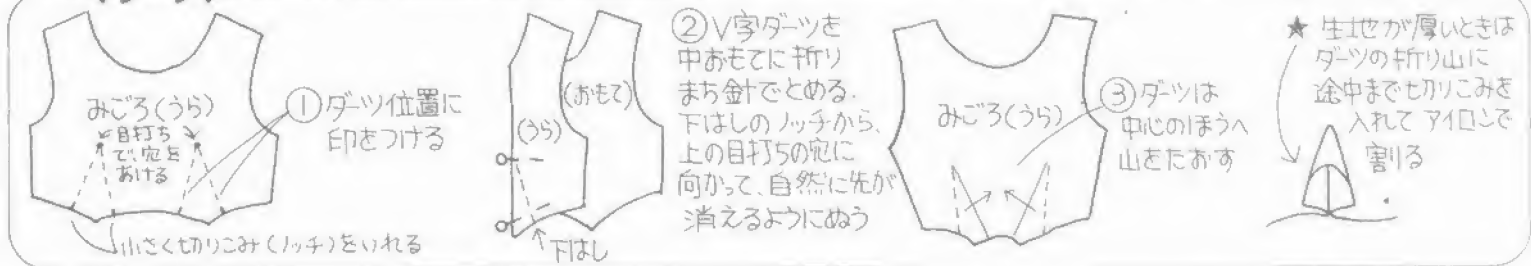 みごろ(うら)
目打ち
で、穴を
あける
①ダーツ位置に
印をつける
小さく切りこみ(ノッチ)をいれる
(うら)
(おもて)
下はし
②V字ダーツを
中おもてに折り
まち針でとめる.
下はしのノッチから、
上の目打ちの穴に
向かって、自然に先が
消えるようにぬう
みごろ(うら)
③ダーツは
中心のほうへ
山をたおす
★生地が厚いときは
ダーツの折り山に
途中まで切りこみを
入れて アイロンで
割る